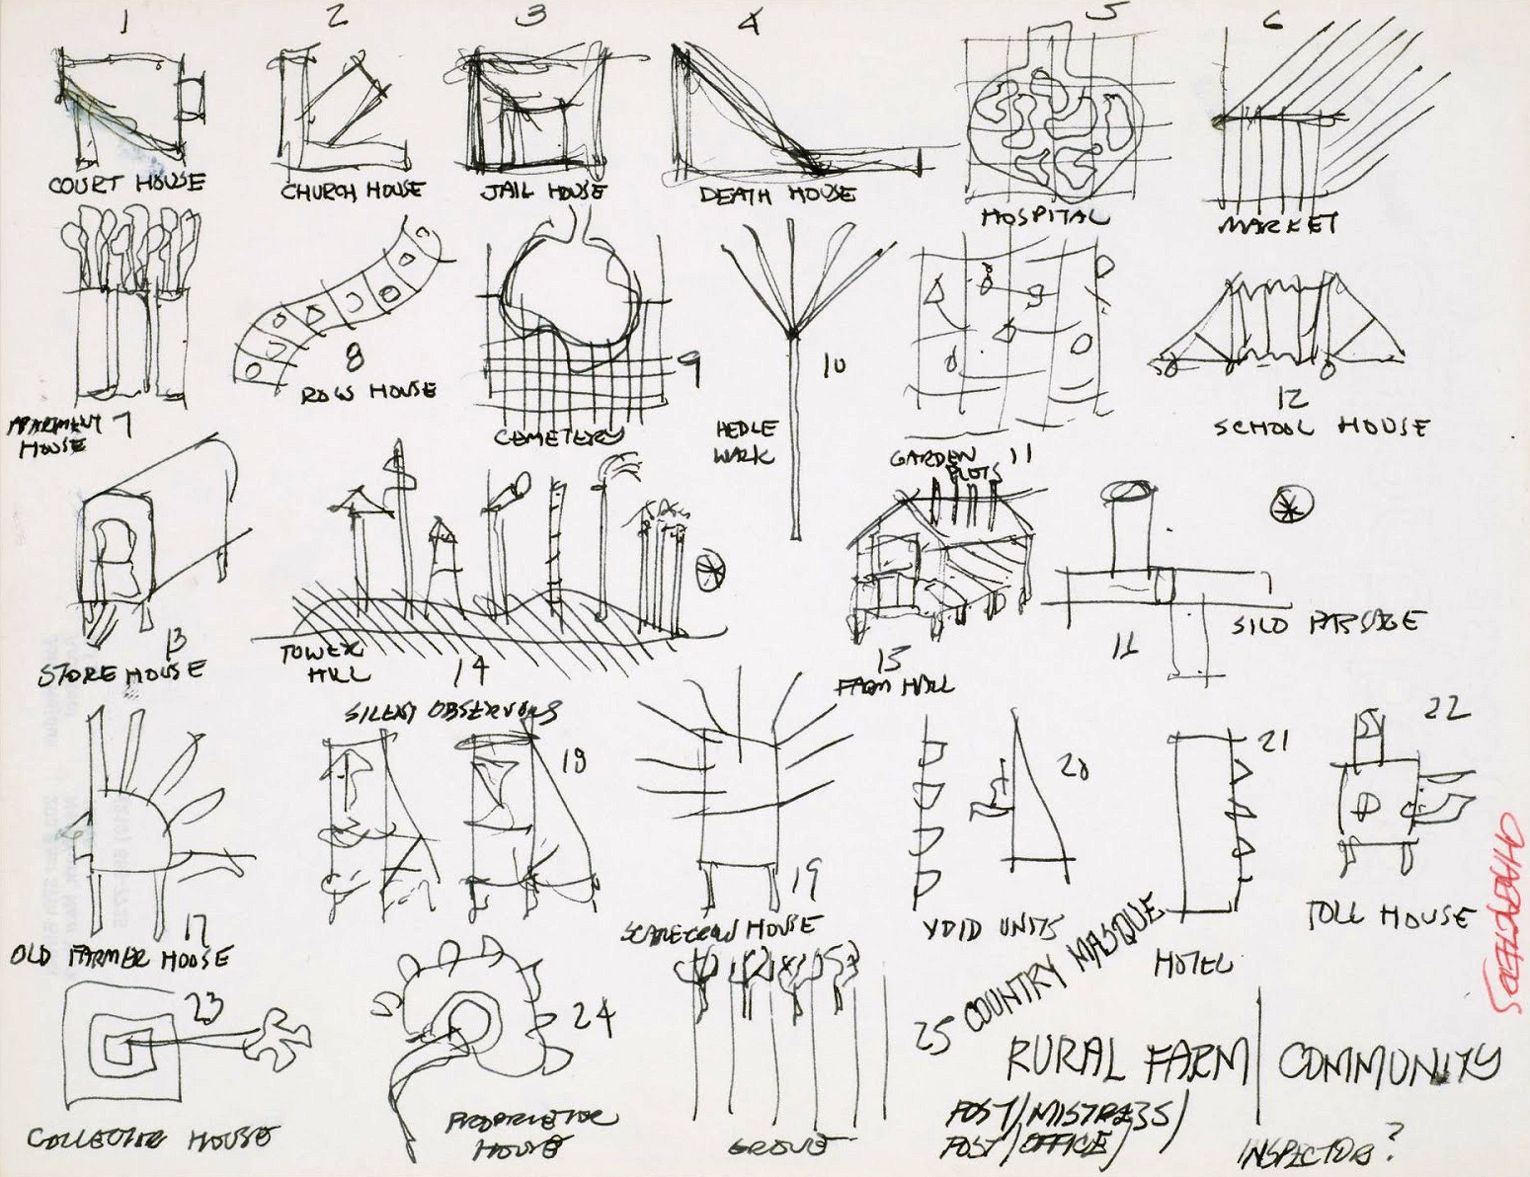 1
2
3
4
5
6
COURT HOUSE
CHURCH HOUSE
JAIL HOUSE
DEATH HOUSE
HOSPITAL
MARKET
7
HOUSE
8
ROW HOUSE
9
CEMETERY
10
HEDLE
WALK
GARDEN
PLOTS
11
12
SCHOOL HOUSE
13
STORE HOUSE
TOWER
HILL
14
SILENT OBSERVORS
15
FARM HALL
11
SILO PASSAGE
17
OLD FARMER HOUSE
18
19
SCARECROW HOUSE
20
VOID UNITS
21
HOTEL
22
TOLL HOUSE
CHARACTERS
23
COLLECTOR HOUSE
24
PROPRIETOR
HOUSE
GROVE
25 COUNTRY MASQUE
RURAL FARM COMMUNITY
POST/MISTRESS/
POST/OFFICE/
INSPECTOR?